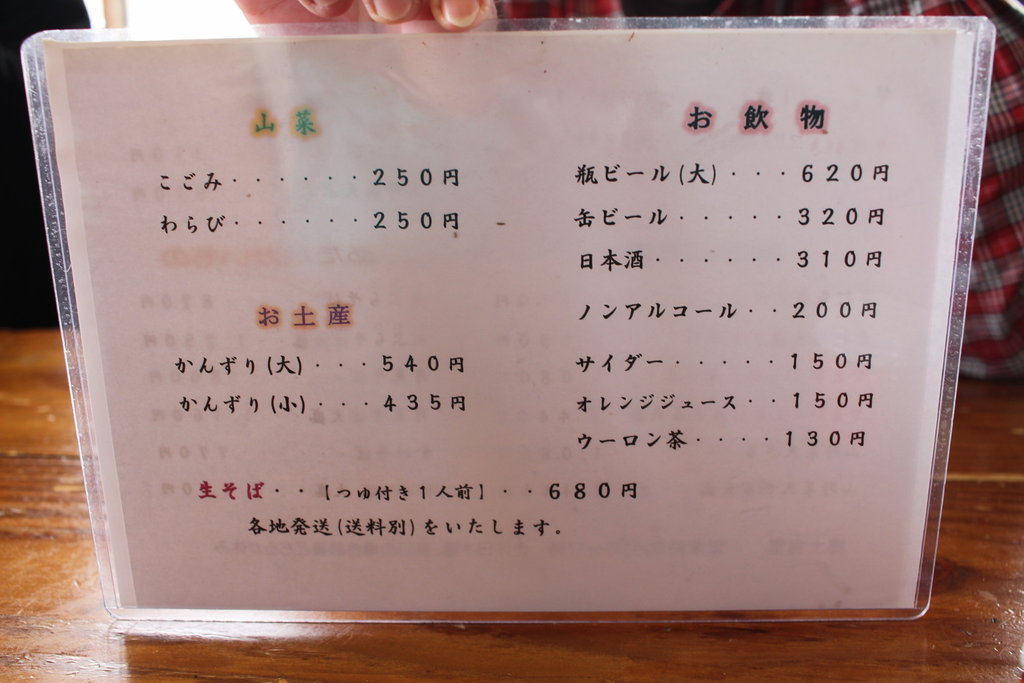 山菜
こごみ・・・・・・250円
わらび・・・・・・250円
お土産
かんずり(大)・・・540円
かんずり(小)・・・435円
お飲物
瓶ビール(大)・・・620円
缶ビール・・・・・320円
日本酒・・・・・・310円
ノンアルコール・・200円
サイダー・・・・・150円
オレンジジュース・・150円
ウーロン茶・・・・130円
生そば・・【つゆ付き1人前】・・680円
各地発送(送料別)をいたします。